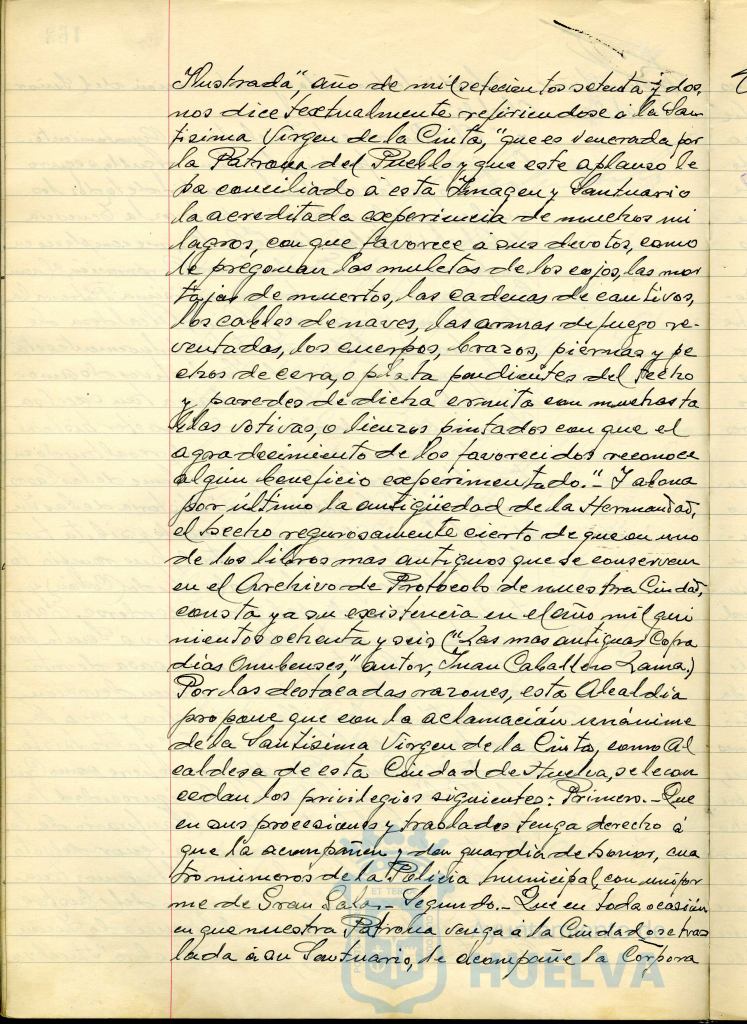 Ilustrada", año de mil setecientos setenta y dos,
nos dice textualmente refiriendose á la San-
tisima Virgen de la Cinta, "que es venerada por
la Patrona del Pueblo y que este aplauso le
ha conciliado á esta Imagen y Santuario
la acreditada experiencia de muchos mi
lagros, con que favorece á sus devotos, como
le pregonan las muletas de los cojos, las mor
tajas de muertos, las cadenas de cautivos,
los cables de naves, las armas de fuego re-
ventadas, los cuerpos, brazos, piernas y pe
chos de cera, o plata pendientes del techo
y paredes de dicha ermita con muchas ta
blas votivas, o lienzos pintados con que el
agradecimiento de los favorecidos reconoce
algún beneficio experimentado."- Y abona
por último la antigüedad de la Hermandad,
el hecho regurosamente cierto de que en uno
de los libros mas antiguos que se conservan
en el Archivo de Protocolo de nuestra Ciudad,
consta ya su existencia en el año mil qui
nientos ochenta y seis ("Las mas antiguas Cofra
dias Onubenses," autor, Juan Caballero Lama.)
Por las destacadas razones, esta Alcaldia
propone que con la aclamación unánime
de la Santisima Virgen de la Cinta, como Al
caldesa de esta Ciudad de Huelva, se le con
cedan los privilegios siguientes: Primero.- Que
en sus procesiones y traslados tenga derecho á
que la acompañen y den guardia de honor, cua
tro números de la Policia Municipal, con unifor
me de Gran Gala.- Segundo.- Que en toda ocasión
en que nuestra Patrona venga á la Ciudad o se tras
lada á su Santuario, le acompañe la Corpora
Ayuntamiento de
HUELVA